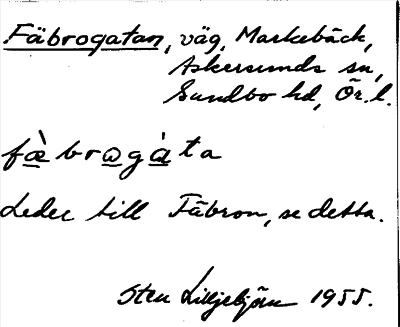 Fäbrogatan, väg, Markebäck,
Askersunds sn,
Sundbo hd, Ör. l.
fæ̀brogàta
Leder till Fäbron, se detta.
Sten Lilljebjörn 1955.